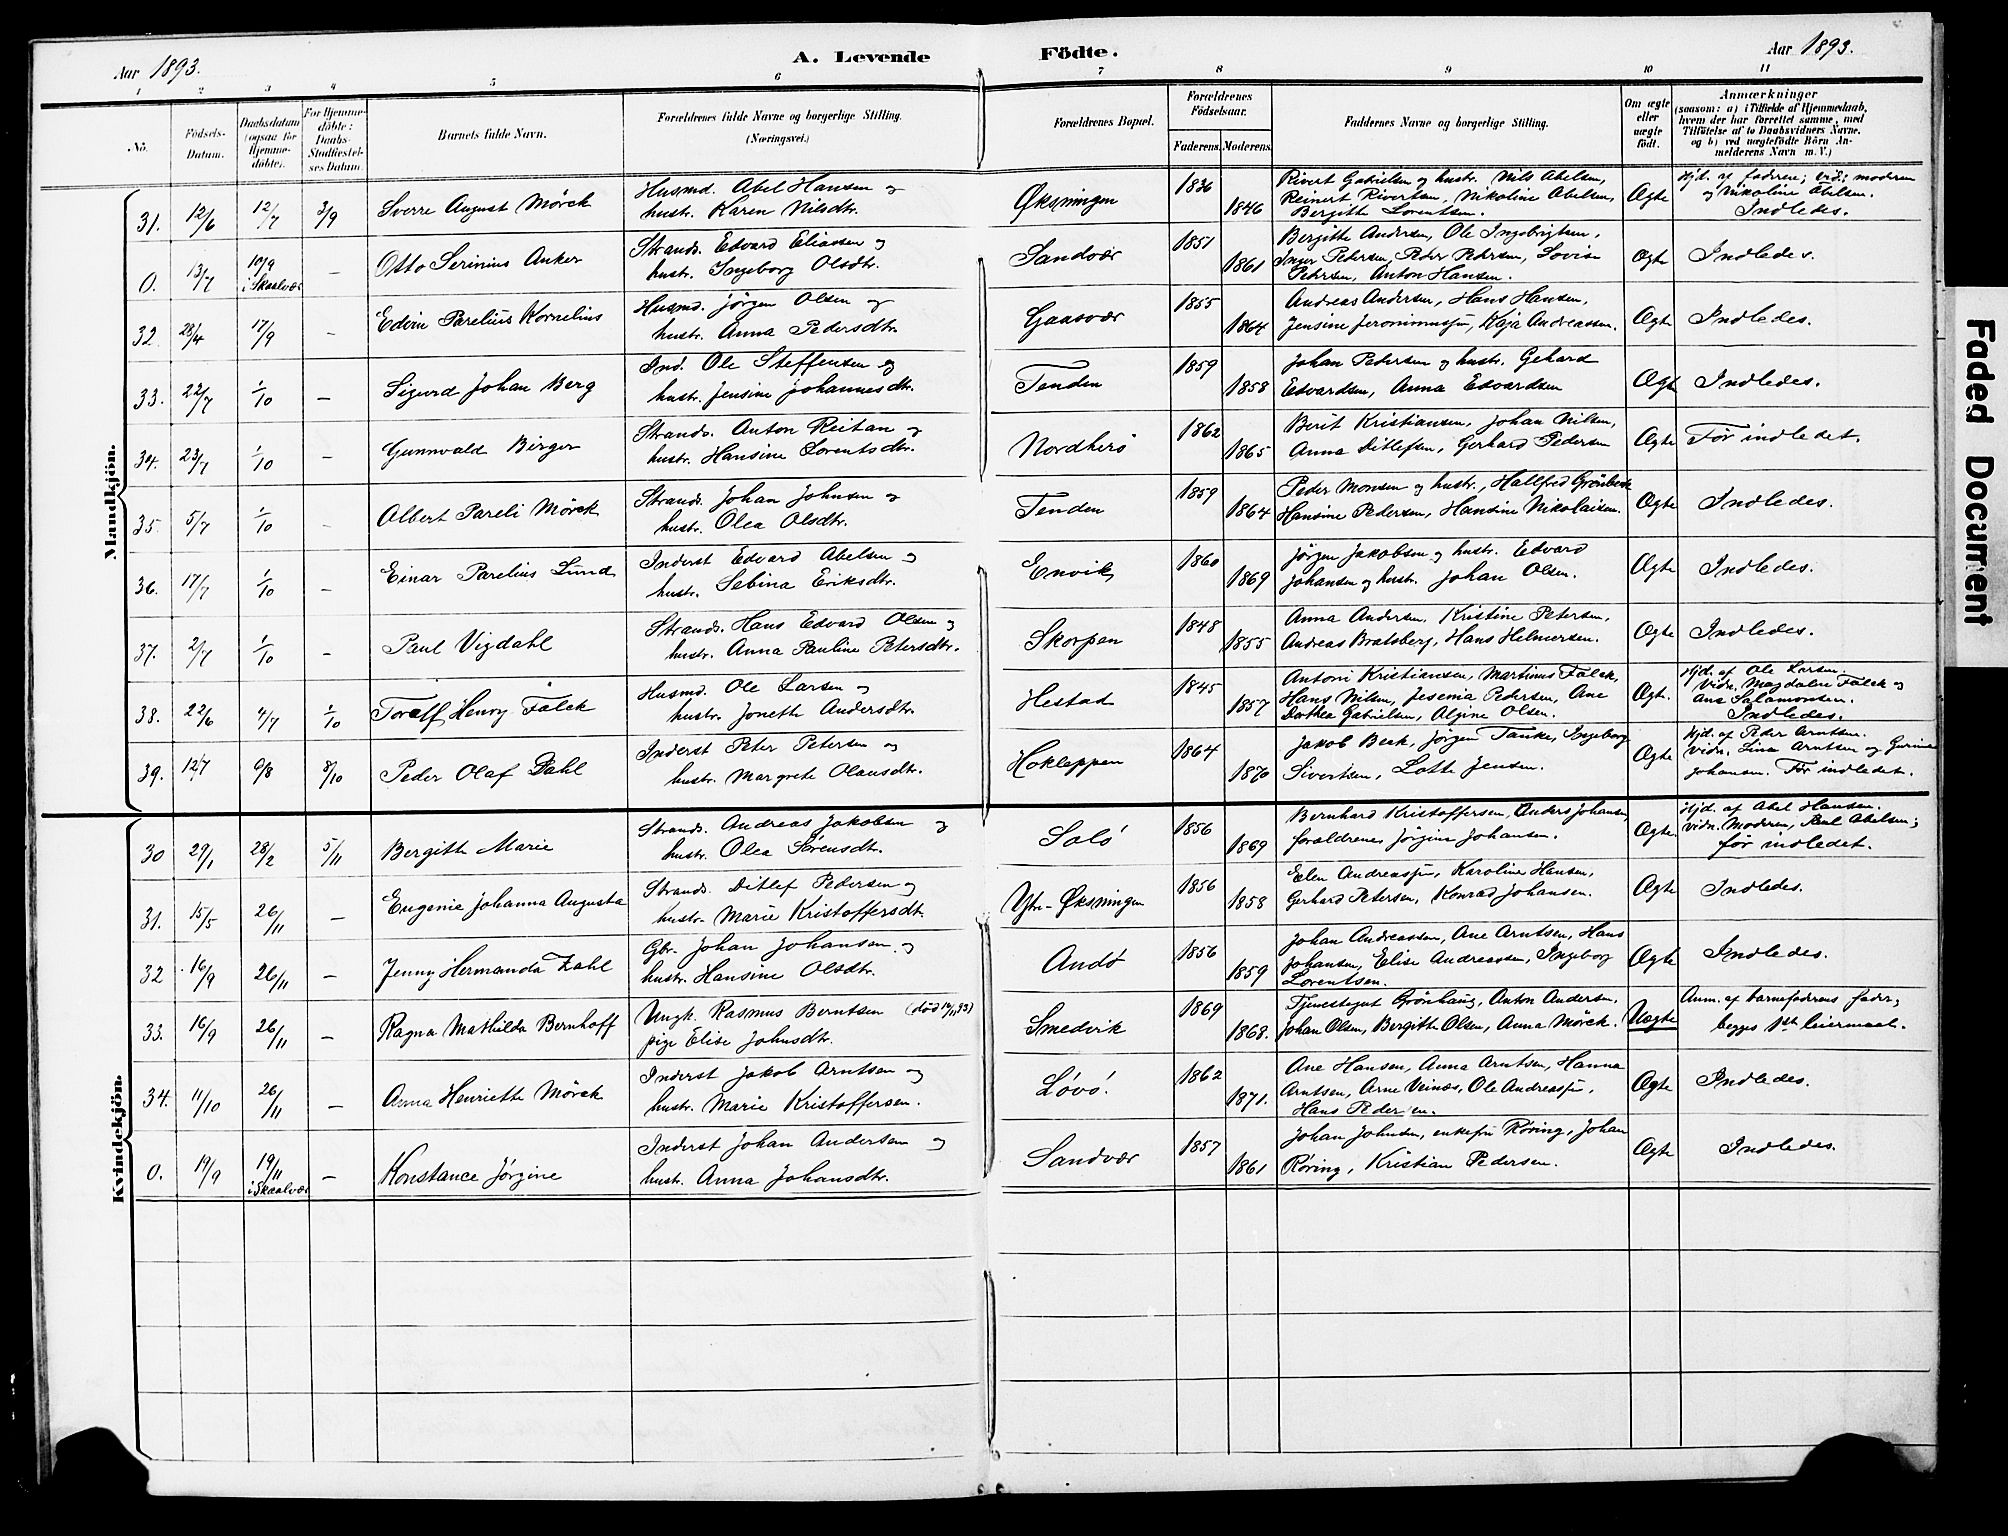 Aar 1893.
A. Levende Födte.
Aar 1893.
1 2 3 4 5 6 7 8 9 10 11
No.
Födsels-Datum.
Daabsdatum (ogsaa for Hjemmedöbte).
For Hjemmedöbte: Daabs-Stadfæstelses Datum.
Barnets fulde Navn.
Forældrenes fulde Navne og borgerlige Stilling. (Næringsvei.)
Forældrenes Bopæl.
Forældrenes Födselsaar.
Faderens. Moderens.
Faddernes Navne og borgerlige Stilling.
Om ægte eller uægte födt.
Anmærkninger (saasom: a) i Tilfælde af Hjemmedaab, hvem der har forrettet samme, med Tilföielse af to Daabsvidners Navne, og b) ved uægtefödte Börn Anmelderens Navn m. V.)
Mandkjön.
31. 12/6 12/7 3/9 Sverre August Mörck
Husmd. Abel Hansen og
hustr. Karen Nilsdtr.
Øksningen 1836 1846
Rivert Gabrielsen og hustr. Nils Abelsen,
Reinert Rivertsen, Nikoline Abelsen,
Bergitte Lorentsen.
Ægte
Hjd. af faderen; vid: moderen
og Nikoline Abelsen.
Indledes.
0. 13/7 10/9 i Skaalvær — Otto Serinius Anker
Strands. Edvard Eliassen og
hustr. Ingeborg Olsdtr.
Sandvær 1851 1861
Bergitte Andersen, Ole Ingebrigtsen,
Inger Petersen, Peder Pedersen, Lovise
Pedersen, Anton Hansen.
Ægte Indledes.
32. 28/4 17/9 — Edvin Parelius Kornelius
Husmd. Jörgen Olsen og
hustr. Anna Pedersdtr.
Gaasvær 1855 1864
Andreas Andersen, Hans Hansen,
Jensine Jeronimussen, Kaja Andreassen.
Ægte Indledes.
33. 22/7 1/10 — Sigurd Johan Berg
Ind. Ole Steffensen og
hustr. Jensine Johannesdtr.
Tenden 1859 1858
Johan Pedersen og hustr. Gehard
Edvardsen, Anna Edvardsen
Ægte Indledes.
34. 23/7 1/10 — Gunnvald Birger
Strands. Anton Reitan og
hustr. Hansine Lorentsdtr.
Nordherö 1862 1865
Berit Kristiansen, Johan Nilsen,
Anna Ditlefsen, Gerhard Pedersen
Ægte Før indledet.
35. 5/7 1/10 — Albert Pareli Mörck
Strands. Johan Johnsen og
hustr. Olea Olsdtr.
Tenden 1859 1864
Peder Monsen og hustr., Hallfred Grönbeck
Hansine Pedersen, Hansine Nikolaisen.
Ægte Indledes.
36. 17/7 1/10 — Einar Parelius Lund
Inderst Edvard Abelsen og
hustr. Sebina Eriksdtr.
Envik 1860 1869
Jörgen Jakobsen og hustr. Edvard
Johansen og hustr. Johan Olsen.
Ægte Indledes.
37. 2/7 1/10 — Paul Vigdahl
Strands. Hans Edvard Olsen og
hustr. Anna Pauline Petersdtr.
Skorpen 1848 1855
Anna Andersen, Kristine Petersen,
Andreas Bratsberg, Hans Helmersen.
Ægte Indledes.
38. 22/6 4/7 1/10 Toralf Henry Falck
Husmd. Ole Larsen og
hustr. Jonette Andersdtr.
Hestad 1845 1857
Antoni Kristiansen, Martinus Falck,
Hans Nilsen, Jesenia Pedersen, Ane
Dorthea Gabrielsen, Algine Olsen.
Ægt.
Hjd. af Ole Larsen.
Vidn. Magdalene Falck og
Ane Salamonsen.
Indledes.
39. 12/7 6/8 8/10 Peder Olaf Dahl
Inderst Peter Petersen og
hustr. Margrete Olausdtr.
Hokleppen 1864 1870
Jakob Beck, Jörgen Tanke, Ingeborg
Sivertsen, Lotte Jensen.
Ægte
Hjd. af Peder Arntsen.
Vidn. Lina Arntsen og
Johansen. Før indledet.
Kvindekjön.
30 29/1 28/2 5/11 Bergitte Marie
Strands. Andreas Jakobsen og
hustr. Olea Sörensdtr.
Solö 1856 1869
Bernhard Kristoffersen, Anders Johansen,
forældrene, Jørgine Johansen.
Ægte
Hjd. af Abel Hansen.
vidn. Moderen, Paul Abelsen;
før indledet.
31. 15/5 26/11 — Eugenie Johanna Augusta
Strands. Ditlef Pedersen og
hustr. Marie Kristoffersdtr.
Ytre-Øksningen 1856 1858
Elen Andreassen, Karoline Hansen,
Gerhard Petersen, Konrad Johansen.
Ægte Indledes.
32 16/9 26/11 — Jenny Hermanda Zahl
Gbr. Johan Johansen og
hustr. Hansine Olsdtr.
Andö 1856 1859
Johan Andreassen, Ane Arntsen, Hans
Johansen, Elise Andreassen, Ingeborg
Lorentsen.
Ægte Indledes.
33. 16/9 26/11 — Ragna Mathilda Bernhoff
Ungk. Rasmus Berntsen (död 14/11 93)
pige Elise Johnsdtr.
Smedvik 1869 1868.
Tjenestegut Grönhaug, Anton Andersen,
Johan Olsen, Bergitte Olsen, Anna Mörck.
Uægte
Anm. af barnefaderens fader;
begges 1ste leiermaal.
34. 11/10 26/11 — Anna Henriette Mörck
Inderst Jakob Arntsen og
hustr. Marie Kristoffersen.
Lövö. 1862 1871.
Ane Hansen, Anna Arntsen, Hanna
Arntsen, Arne Veinæs, Ole Andreassen,
Hans Pedersen.
Ægte Indledes.
0. 19/9 19/11 i Skaalvær — Konstance Jörgine
Inderst Johan Andersen og
hustr. Anna Johansdtr.
Sandvær 1857 1861
Johan Johnsen, enkefru Röring, Johan
Röring, Kristian Pedersen.
Ægte Indledes.
Faded Document